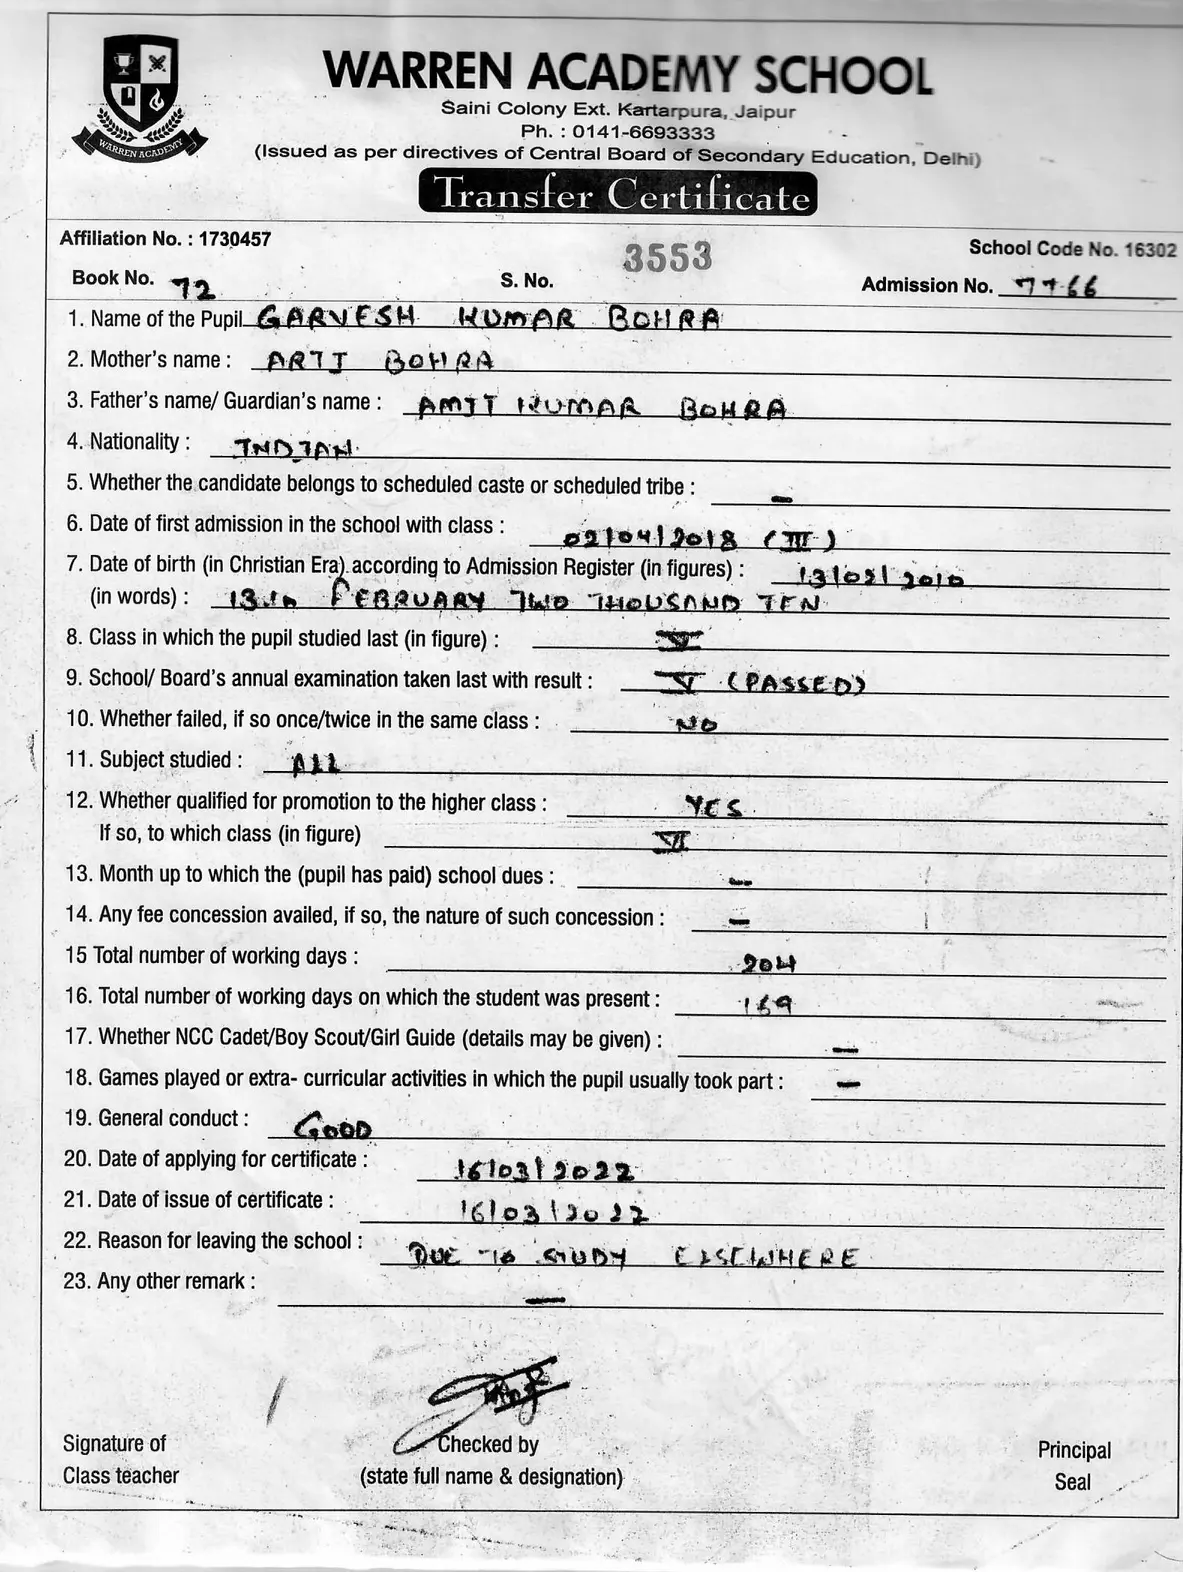 WARREN ACADEMY
WARREN ACADEMY SCHOOL
Saini Colony Ext. Kartarpura, Jaipur
Ph. : 0141-6693333
(Issued as per directives of Central Board of Secondary Education, Delhi)
Transfer Certificate
Affiliation No. : 1730457
3553
School Code No. 16302
Book No. 72
S. No.
Admission No. 7766
1. Name of the Pupil GARVESH KUMAR BOHRA
2. Mother's name : ARTI BOHRA
3. Father's name/ Guardian's name : AMIT KUMAR BOHRA
4. Nationality : INDIAN
5. Whether the candidate belongs to scheduled caste or scheduled tribe : –
6. Date of first admission in the school with class : 02/04/2018 (III)
7. Date of birth (in Christian Era) according to Admission Register (in figures) : 13/02/2010
(in words) : 13th FEBRUARY TWO THOUSAND TEN
8. Class in which the pupil studied last (in figure) : V
9. School/ Board's annual examination taken last with result : V (PASSED)
10. Whether failed, if so once/twice in the same class : NO
11. Subject studied : ALL
12. Whether qualified for promotion to the higher class : YES
If so, to which class (in figure) VI
13. Month up to which the (pupil has paid) school dues : –
14. Any fee concession availed, if so, the nature of such concession : –
15 Total number of working days : 204
16. Total number of working days on which the student was present : 169
17. Whether NCC Cadet/Boy Scout/Girl Guide (details may be given) : –
18. Games played or extra- curricular activities in which the pupil usually took part : –
19. General conduct : GOOD
20. Date of applying for certificate : 16/03/2022
21. Date of issue of certificate : 16/03/2022
22. Reason for leaving the school : DUE TO STUDY ELSEWHERE
23. Any other remark : –
Signature of
Class teacher
Checked by
(state full name & designation)
Principal
Seal